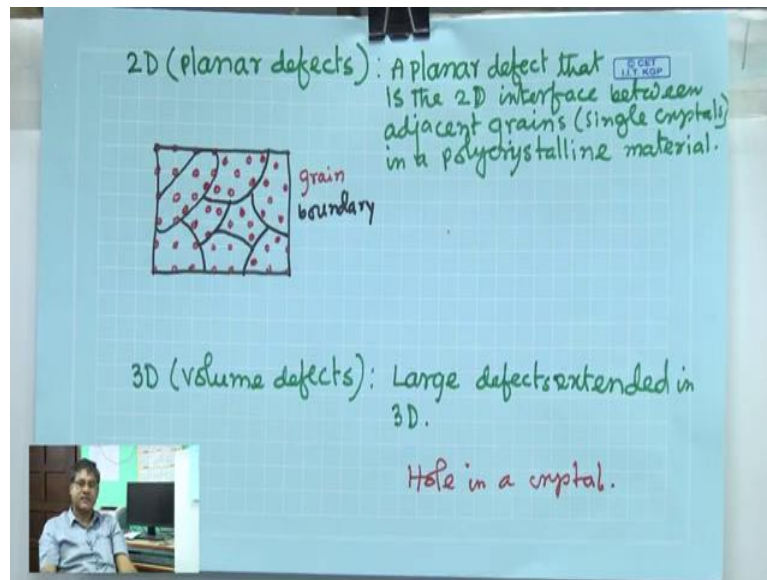 2D (planar defects): A planar defect that
© CET
I.I.T. KGP
is the 2D interface between
adjacent grains (single crystals)
in a polycrystalline material.
grain
boundary
3D (volume defects): Large defects extended in
3D.
Hole in a crystal.